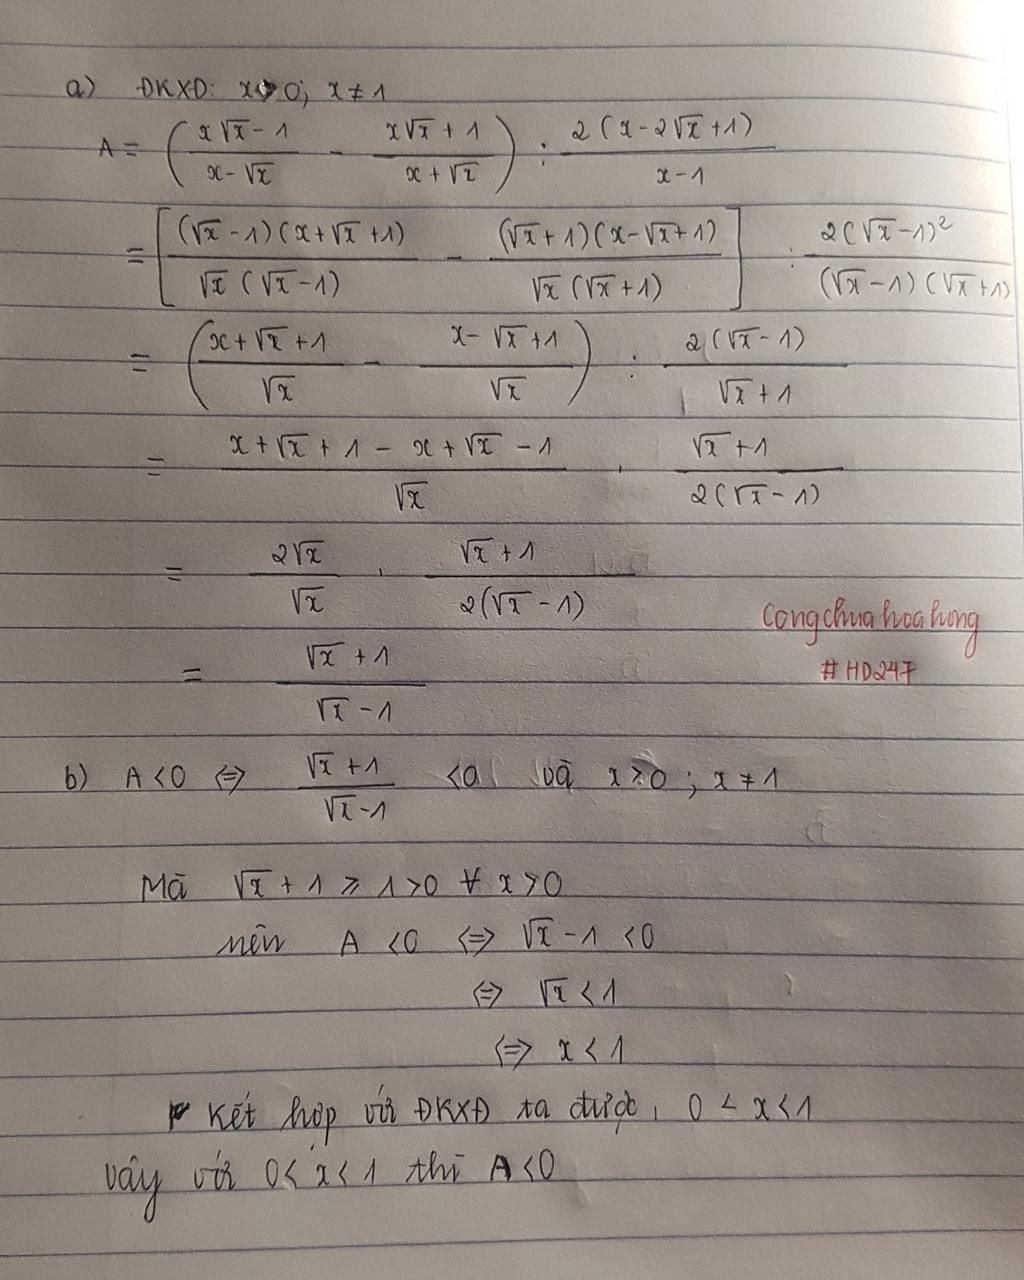 a) ĐKXĐ: x > 0; x ≠ 1
A = ( (x√x - 1)/(x - √x) - (x√x + 1)/(x + √x) ) : 2(x - 2√x + 1)/(x - 1)
= [ (√x - 1)(x + √x + 1)/(√x (√x - 1)) - (√x + 1)(x - √x + 1)/(√x (√x + 1)) ] : 2(√x - 1)²/((√x - 1)(√x + 1))
= ( (x + √x + 1)/√x - (x - √x + 1)/√x ) : 2(√x - 1)/(√x + 1)
= (x + √x + 1 - x + √x - 1)/√x . (√x + 1)/(2(√x - 1))
= 2√x/√x . (√x + 1)/(2(√x - 1))
Congchuahoahong
= (√x + 1)/(√x - 1)
#HD247
b) A < 0 ⇔ (√x + 1)/(√x - 1) < 0 và x > 0; x ≠ 1
Mà √x + 1 ≥ 1 > 0 ∀ x > 0
nên A < 0 ⇔ √x - 1 < 0
⇔ √x < 1
⇔ x < 1
Kết hợp với ĐKXĐ ta được, 0 < x < 1
vậy với 0 < x < 1 thì A < 0